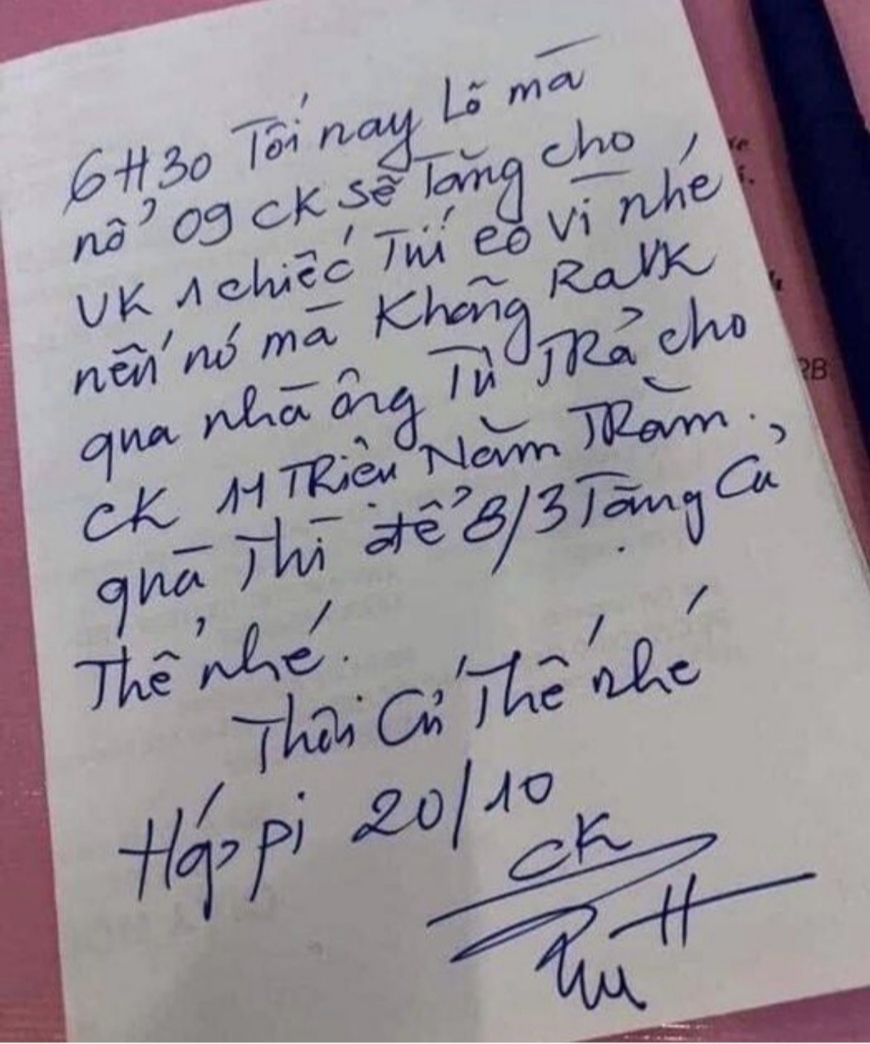 6H30 Tối nay Lỡ mà
nổ 09 CK sẽ Tặng cho
VK 1 chiếc Túi eo Vì nhé
nếu nó mà Không Ra VK
qua nhà ông Tú TRả cho
CK 11 TRiệu Năm TRăm.
quà Thì để 8/3 Tặng Cả
Thể nhé.
Thôi Cứ Thế nhé
Háp pi 20/10
CK